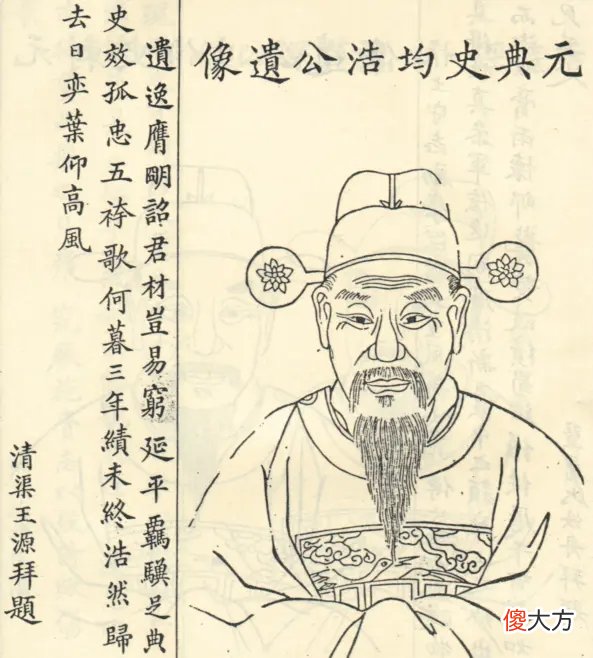 元典史均浩公遺像
遺逸膺明詔君材豈易窮延平覊驥足典
史效孤忠五袴歌何暮三年績未終浩然歸
去日奕葉仰高風
清渠王源拜題
傻大方